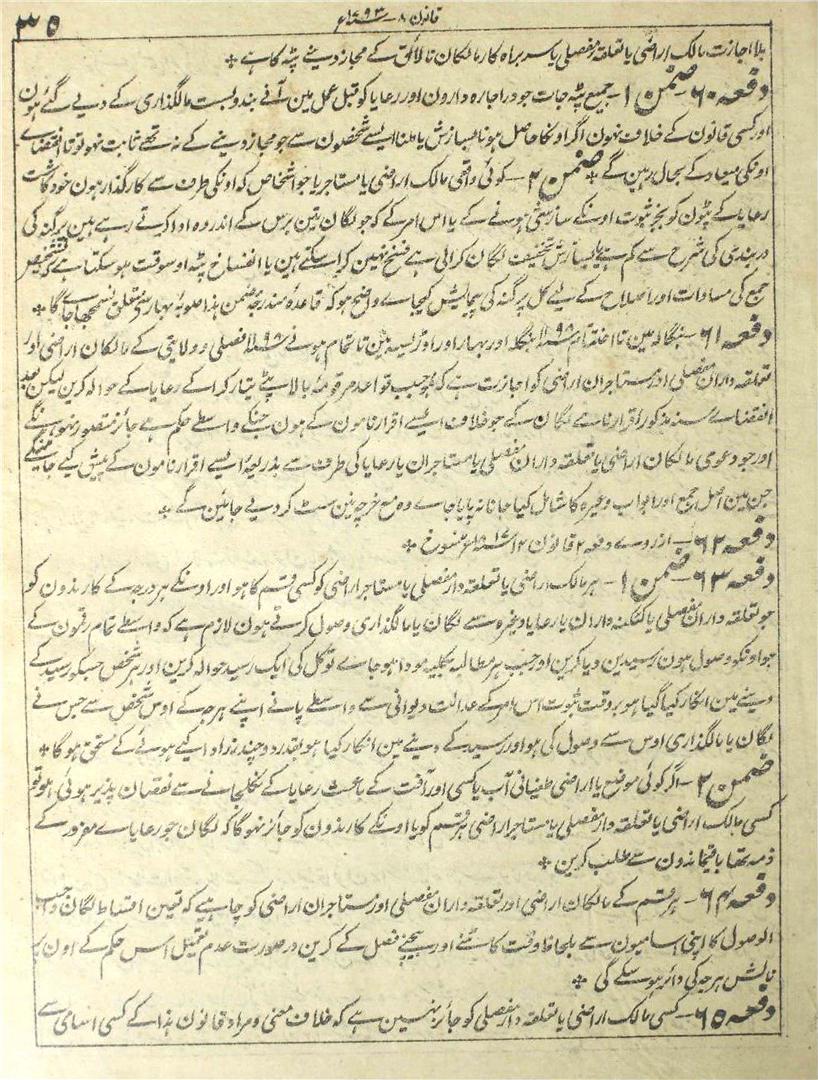 قانون ۸ سنہ ۱۷۹۳ع
۳۵
بلا اجازت مالک اراضی یا تعلقہ دار مفصلی یا سربراہ کار مالکان نالائق کے مجاز دینے پٹہ کا ہے *
دفعہ ۶۰ — ضمن ۱ — جمیع پٹہ جات جو در اجارہ دارون اور رعایا کو قبل عمل مین آنے بندوبست مالگذاری کے دیے گئے ہون
اور کسی قانون کے خلاف نہون اگر اونکا حاصل ہونا بسازش یا ملنا ایسے شخصون سے جو مجاز دینے کے نہ تھے ثابت نہو تو تا انقضاے
اونکی میعاد کے بحال رہین گے * ضمن ۲ — کوئی واقعی مالک اراضی یا مستاجر یا جو اشخاص کہ اونکی طرف سے کارگذار ہون خودکاشت
رعایا کے پٹون کو بجز ثبوت اونکے سازشی ہونے کے یا اس امر کے کہ جو لگان تین برس کے اندر وہ ادا کرتے رہے ہین پرگنہ کی
در بندی کی شرح سے کم ہے یا بسازش تخفیف لگان کرالی ہے فسخ نہین کراسکتے ہین یا انفساخ پٹہ اوسوقت ہوسکتا ہے کہ تشخیص
جمع کی مساوات اور اصلاح کے لیے کل پرگنہ کی پیمایش کیجاے واضح ہو کہ قاعدہ مندرجہ ضمن ہذا صوبۂ بہار سے متعلق نسمجھا جاے گا *
دفعہ ۶۱ — بنگالہ مین تا اختتام سنہ ۱۱۹۸ بنگلہ اور بہار اور اوڑیسہ مین تا تمام ہونے سنہ ۱۱۹۸ فصلی و ولایتی کے مالکان اراضی اور
تعلقہ داران مفصلی اور مستاجران اراضی کو اجازت ہے کہ بموجب قواعد مرقومۂ بالا پٹے تیار کراکے رعایا کے حوالہ کرین لیکن بعد
انقضاے سنہ مذکور اقرارنامے لگان کے جو خلاف ایسے اقرارنامون کے ہون جنکے واسطے حکم ہے جائز متصور نہونگے
اور جو دعوی مالکان اراضی یا تعلقہ داران مفصلی یا مستاجران یا رعایا کی طرف سے بذریعہ ایسے اقرارنامون کے پیش کیے جائینگے
جن مین اصل جمع اور ابواب وغیرہ کا شامل کیا جانا نہ پایا جاے وہ مع خرچہ نن سٹ کردیے جائین گے *
دفعہ ۶۲ — از روے دفعہ ۲ قانون ۱۲ سنہ ۱۸۱۷ع منسوخ *
دفعہ ۶۳ — ضمن ۱ — ہر مالک اراضی یا تعلقہ دار مفصلی یا مستاجر اراضی کو کسی قسم کا ہو اور اونکے ہر درجہ کے کارندون کو
جو تعلقہ داران مفصلی یا کٹکنہ داران یا رعایا وغیرہ سے لگان یا مالگذاری وصول کرتے ہون لازم ہے کہ واسطے تمام رقمون کے
جو اونکو وصول ہون رسیدین دیا کرین اور جب ہر مطالبہ بکلیہ مودا ہوجاے تو کل کی ایک رسید حوالہ کرین اور ہر شخص جسکو رسید کے
دینے مین انکار کیا گیا ہو بر وقت ثبوت اس امر کے عدالت دیوانی سے واسطے پانے اپنے ہرجہ کے اوس شخص سے جس نے
لگان یا مالگذاری اوس سے وصول کی ہو اور رسید کے دینے مین انکار کیا ہو بقدر دوچند زر ادا کیے ہوئے کے مستحق ہوگا *
ضمن ۲ — اگر کوئی موضع یا اراضی طغیانی آب یا کسی اور آفت کے باعث رعایا کے نکلجانے سے نقصان پذیر ہوئی ہو تو
کسی مالک اراضی یا تعلقہ دار مفصلی یا مستاجر اراضی ہر قسم کو یا اونکے کارندون کو جائز نہوگا کہ لگان جو رعایاے مفرور کے
ذمہ تھا باقیماندون سے طلب کرین *
دفعہ ۶۴ — ہر قسم کے مالکان اراضی اور تعلقہ داران مفصلی اور مستاجران اراضی کو چاہیے کہ تعین اقساط لگان واجب
الوصول کا اپنی اسامیون سے بلحاظ وقت کاٹنے اور بیچنے فصل کے کرین در صورت عدم تعمیل اس حکم کے اون پر
نالش ہرجہ کی دائر ہوسکے گی *
دفعہ ۶۵ — کسی مالک اراضی یا تعلقہ دار مفصلی کو جائز نہین ہے کہ خلاف معنی و مراد قانون ہذا کے کسی اسامی سے